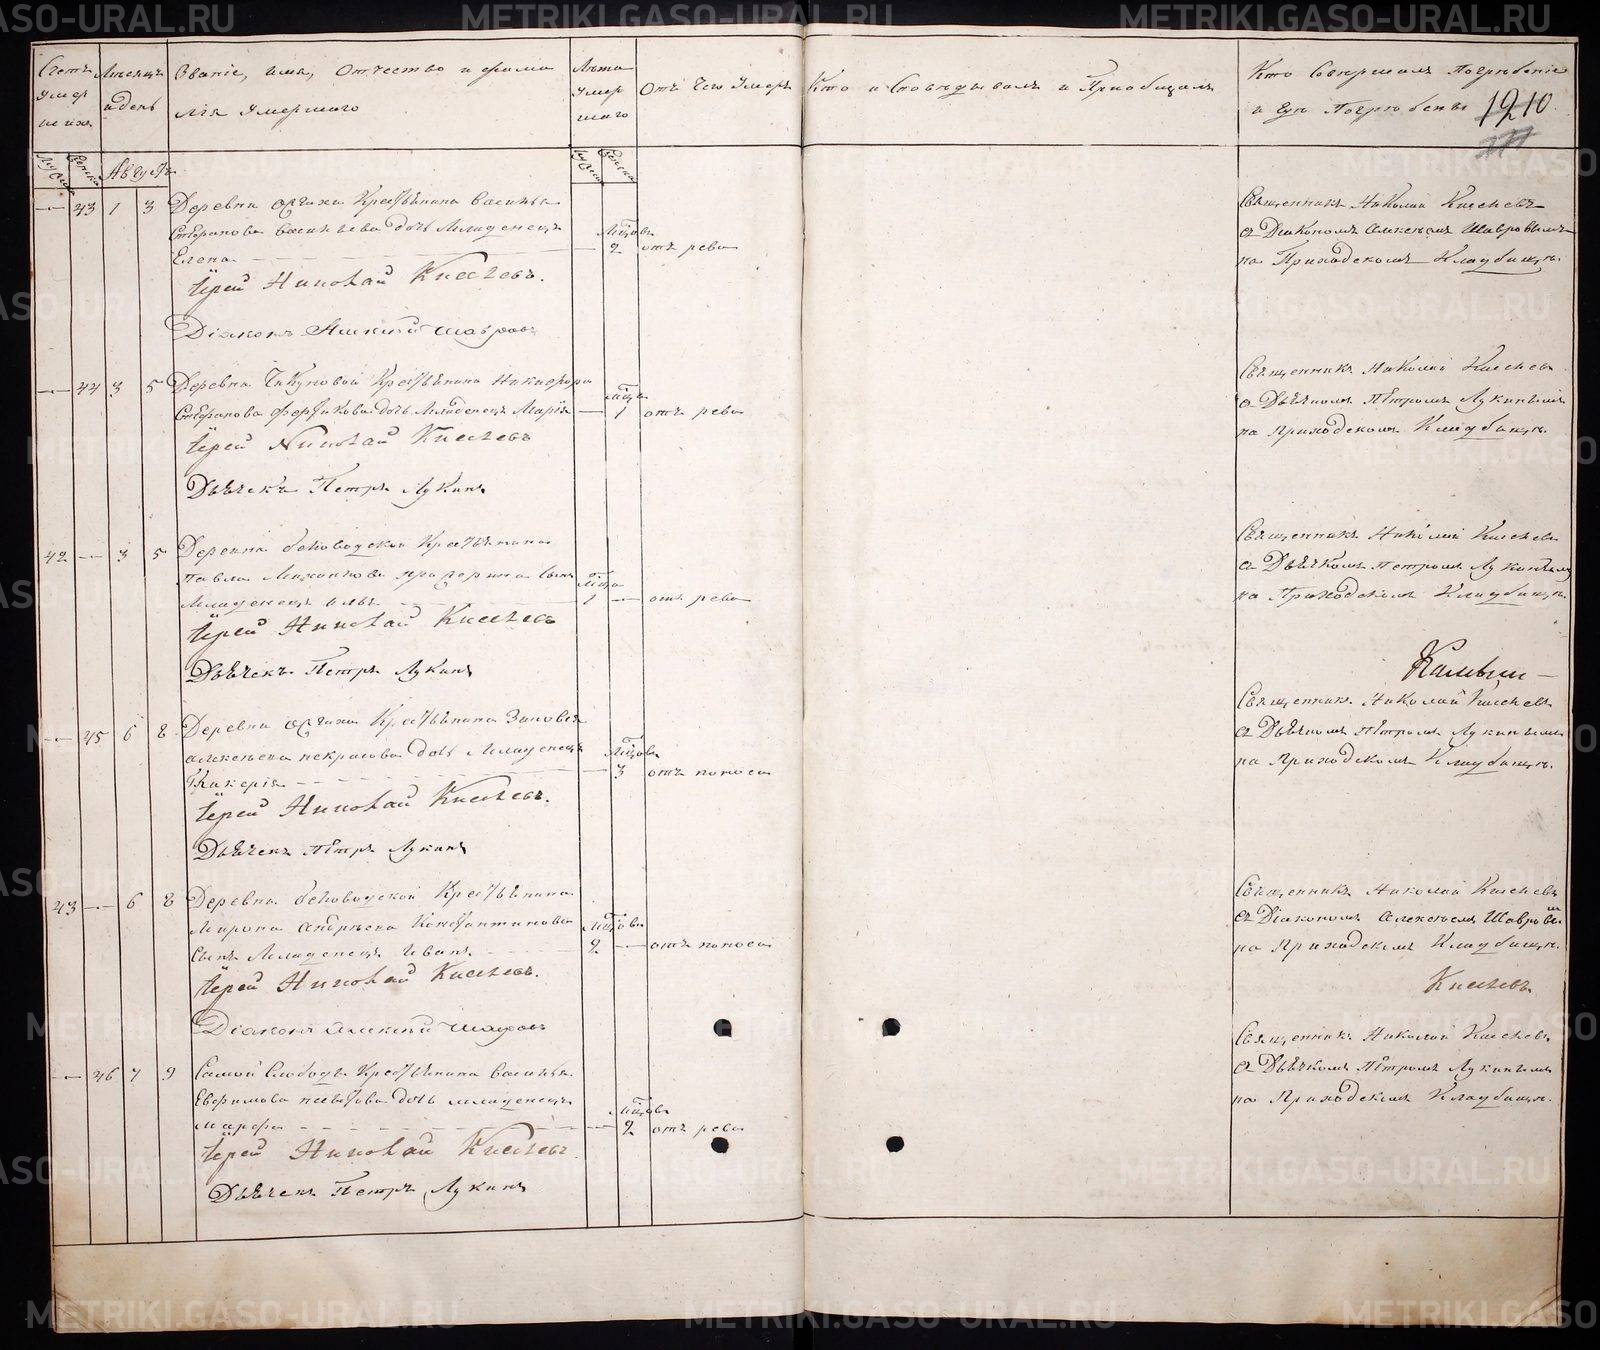 Счетъ умершихъ
Мѣсяцъ и день
Званіе, имя, отчество и фамилія умершаго
Лѣта умершаго
Отъ чего умеръ
Кто исповѣдывалъ и приобщалъ
Кто совершалъ погребеніе и гдѣ погребены
1210
Августъ
43 1 3 Деревни Крестьянина Василья
Стефанова Васильева дочь младенецъ
Елена
2 отъ рева
Іерей Николай Киселевъ.
Діаконъ Алексій Шавровъ
Священникъ Николай Киселевъ
съ Діакономъ Алексѣемъ Шавровымъ
на Приходскомъ Кладбищѣ.
44 3 5 Деревни Крестьянина Никифора
Стефанова дочь младенецъ Марія
1 отъ рева
Іерей Николай Киселевъ
Дьячекъ Петръ Лукинъ
Священникъ Николай Киселевъ
съ Дьячкомъ Петромъ Лукинымъ
на приходскомъ Кладбищѣ.
42 3 5 Деревни Беловодской Крестьянина
Павла сынъ
младенецъ
1 отъ рева
Іерей Николай Киселевъ
Дьячекъ Петръ Лукинъ
Священникъ Николай Киселевъ
съ Дьячкомъ Петромъ Лукинымъ
на Приходскомъ Кладбищѣ.
45 6 8 Деревни Крестьянина Зиновья
Алексѣева Некрасова дочь младенецъ
Гликерія
3 отъ поноса
Іерей Николай Киселевъ.
Дьячекъ Петръ Лукинъ
Священникъ Николай Киселевъ
съ Дьячкомъ Петромъ Лукинымъ
на приходскомъ Кладбищѣ.
43 6 8 Деревни Беловодской Крестьянина
Мирона Андрѣева Константинова
сынъ младенецъ Иванъ
2 отъ поноса
Іерей Николай Киселевъ.
Діаконъ Алексій Шавровъ
Священникъ Николай Киселевъ
съ Діакономъ Алексѣемъ Шавровымъ
на приходскомъ Кладбищѣ.
Киселевъ
46 7 9 Самой Слободы Крестьянина Василья
Евфимова дочь младенецъ
Марфа
2 отъ рева
Іерей Николай Киселевъ
Дьячекъ Петръ Лукинъ
Священникъ Николай Киселевъ
съ Дьячкомъ Петромъ Лукинымъ
на приходскомъ Кладбищѣ.
METRIKI.GASO-URAL.RU